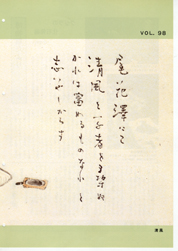 VOL. 98
尾花澤にて
清風と云者を尋ぬ
かれは富めるものなれと
志いやしからす